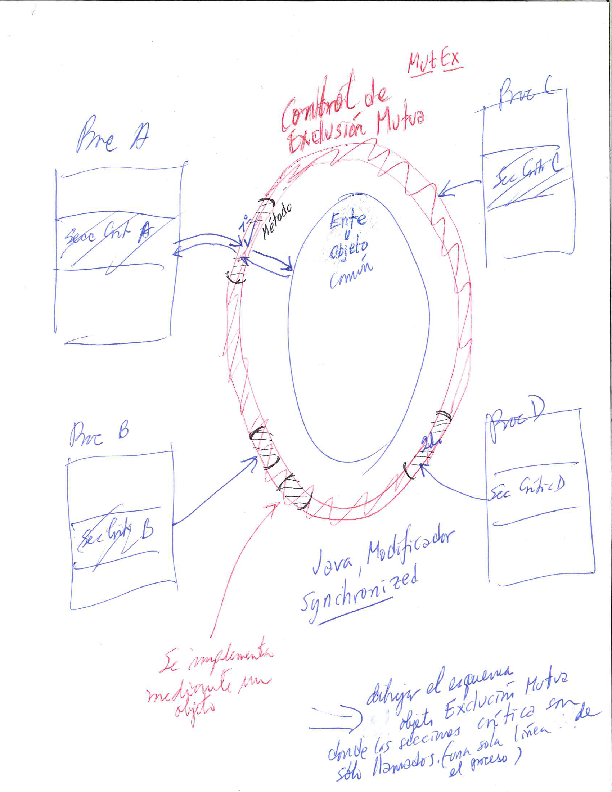 MutEx
Control de
Exclusión Mutua
Proc A
Secc Crit A
Proc C
Sec Crit C
1º
Método
Ente
y
Objeto
Común
Proc B
Sec Crit B
Proc D
Sec Crític D
Java, Modificador
Synchronized
Se implementa
mediante un
objeto
dibujar el esquema
objeto Exclución Mutua
donde las secciones crítica son
sólo llamados. (una sola línea de
el proceso)